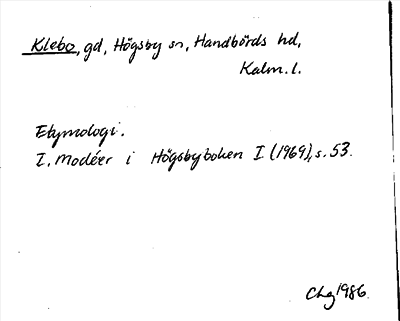 Klebo, gd, Högsby sn, Handbörds hd,
Kalm. l.
Etymologi.
I. Modéer i Högsbyboken I (1969), s. 53.
Chg 1986.